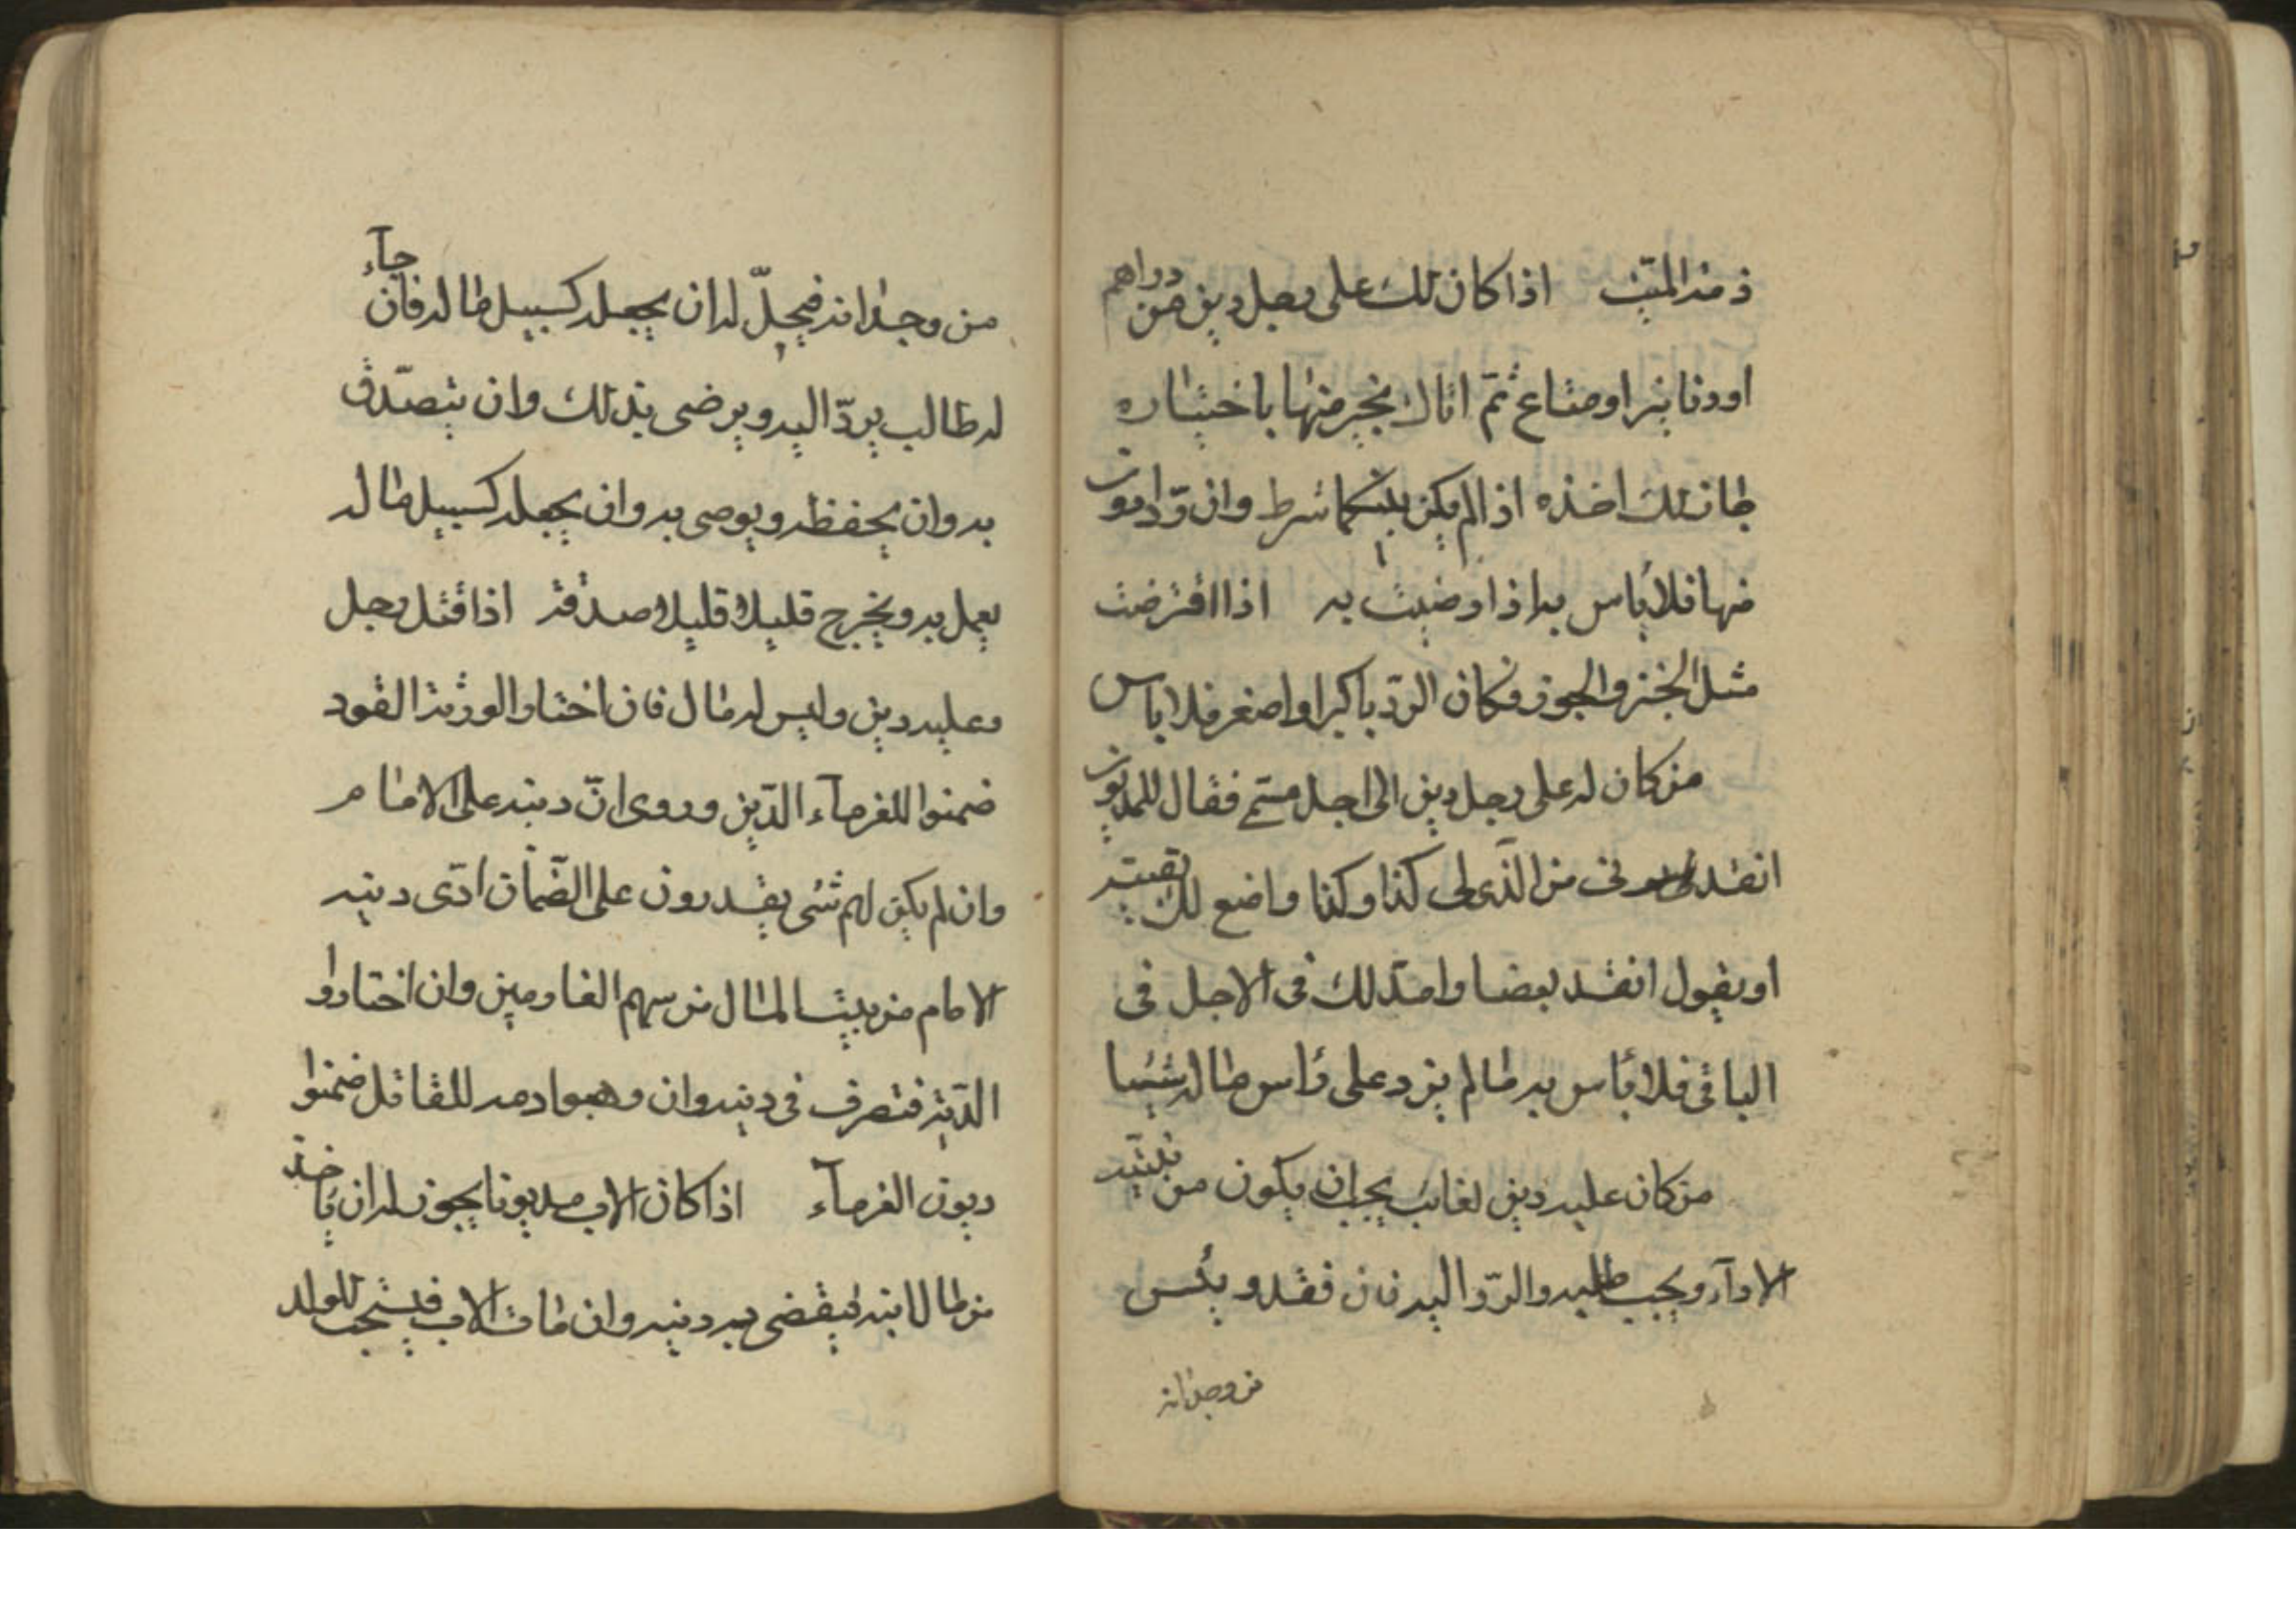 ذمة الميّت اذا كان لك على رجل دين من دراهم
او دنانير او متاع ثمّ اتاك بخير منها باختياره
مانك اخذه اذا لم يكن بينكما شرط وان
منها فلا بأس به اذا رضيت به اذا اقترضت
مثل الخبز والجوز فكان الردّ باكبر او اصغر فلا باس
من كان له على رجل دين الى اجل مسمّى فقال للمديون
انقدنى من الّذى لى كذا وكذا واضع لك بقيته
او يقول انقد بعضا وامدّ لك فى الاجل فى
الباقى فلا بأس به ما لم يزد على رأس ماله شيئا
من كان عليه دين لغائب يجب ان يكون من نيّته
الادآء ويجب طلبه والردّ اليه فان فقد ويئس
من وجدانه
من وجدانه فيحلّ له ان يجعله كسبيل ماله فان جآء
له طالب يردّ اليه ويرضى بذلك وان يتصدّق
به وان يحفظه ويوصى به وان يجعله كسبيل ماله
يعمل به ويخرج قليلا قليلا صدقة اذا قتل رجل
وعليه دين وليس له مال فان اختار الورثة القود
ضمنوا للغرمآء الدّين وروى انّ دينه على الامام
وان لم يكن لهم شئ يقدرون على الضّمان ادّى دينه
الامام من بيت المال من سهم الغارمين وان اختاروا
الدّية فتصرف فى دينه وان وهبوا دمه للقاتل ضمنوا
ديون الغرمآء اذا كان الاب مديونا يجوز له ان يأخذ
من مال ابنه ليقضى به دينه وان مات الاب فيستحب للولد